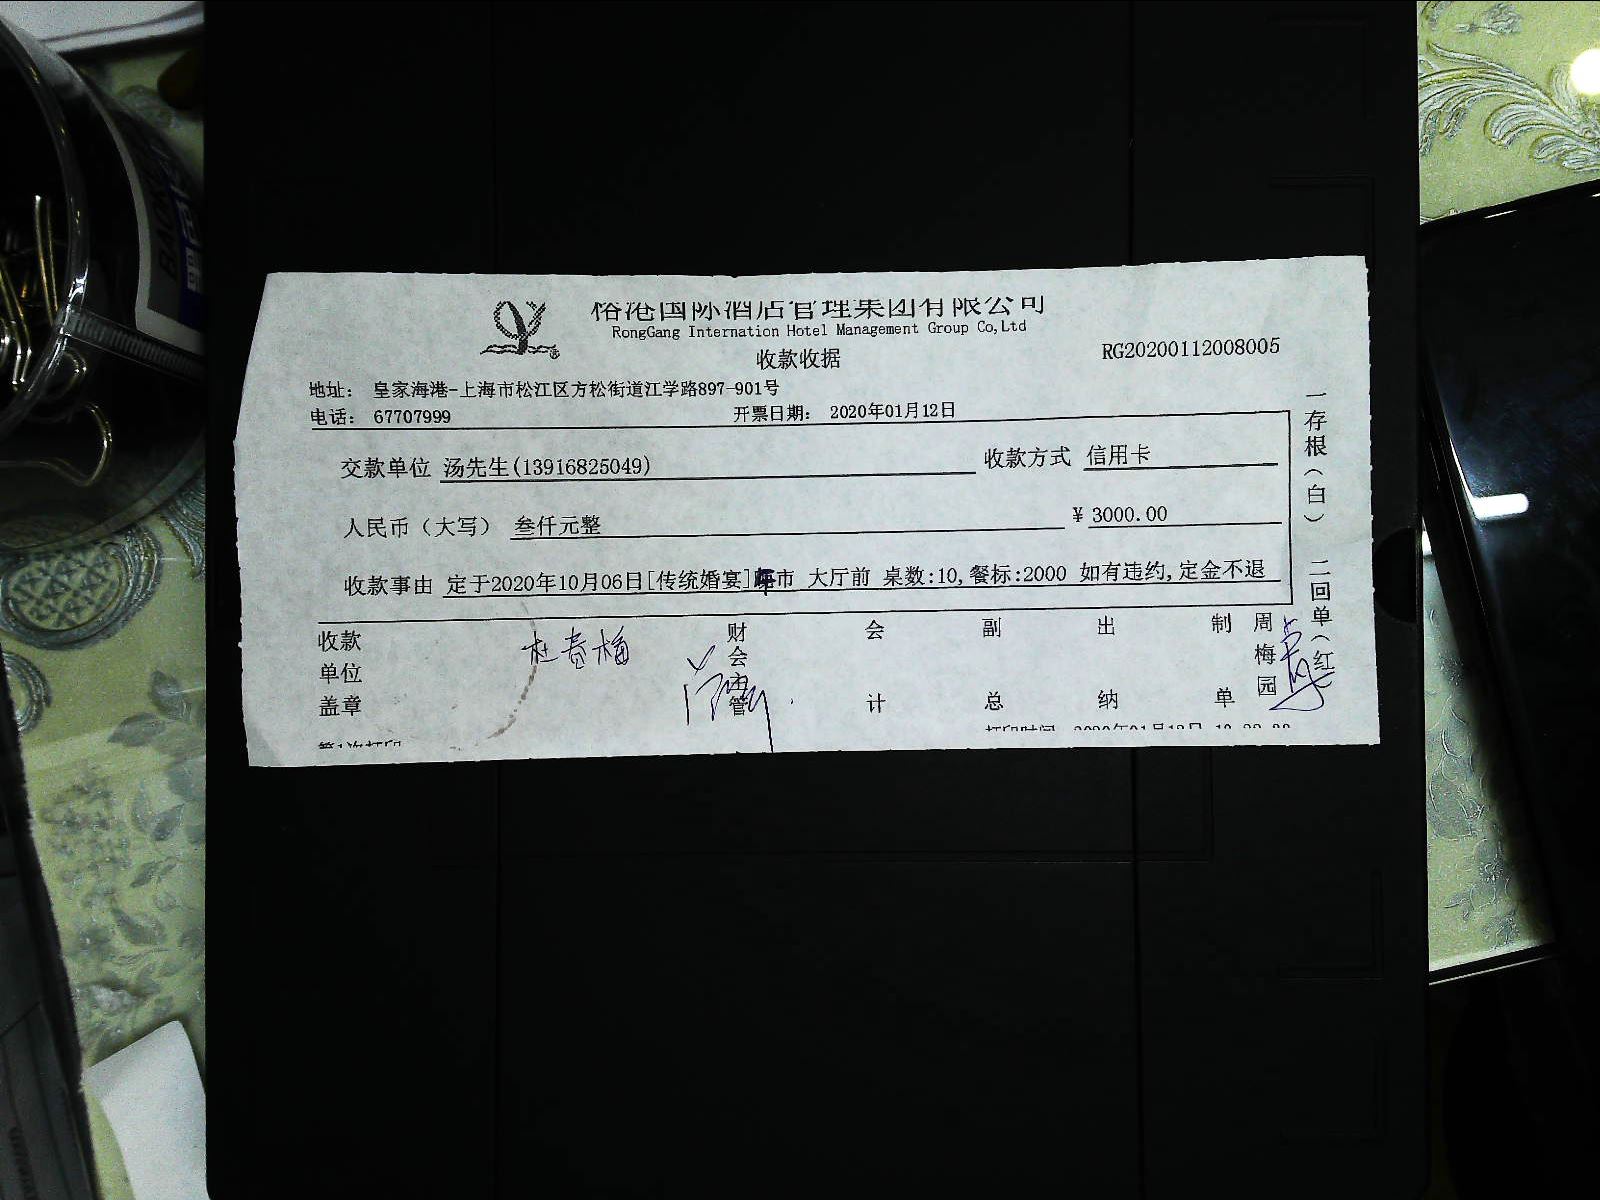 榕港国际酒店管理集团有限公司
RongGang Internation Hotel Management Group Co,Ltd
收款收据
RG20200112008005
地址： 皇家海港-上海市松江区方松街道江学路897-901号
电话： 67707999 开票日期： 2020年01月12日
交款单位 汤先生(13916825049) 收款方式 信用卡
人民币（大写） 叁仟元整 ¥ 3000.00
收款事由 定于2020年10月06日[传统婚宴] 市 大厅前 桌数:10,餐标:2000 如有违约,定金不退
收款单位盖章 杜春梅 财会主管 会计 副总 出纳 制单 周梅园
第1次打印 打印时间
一存根（白） 二回单（红）